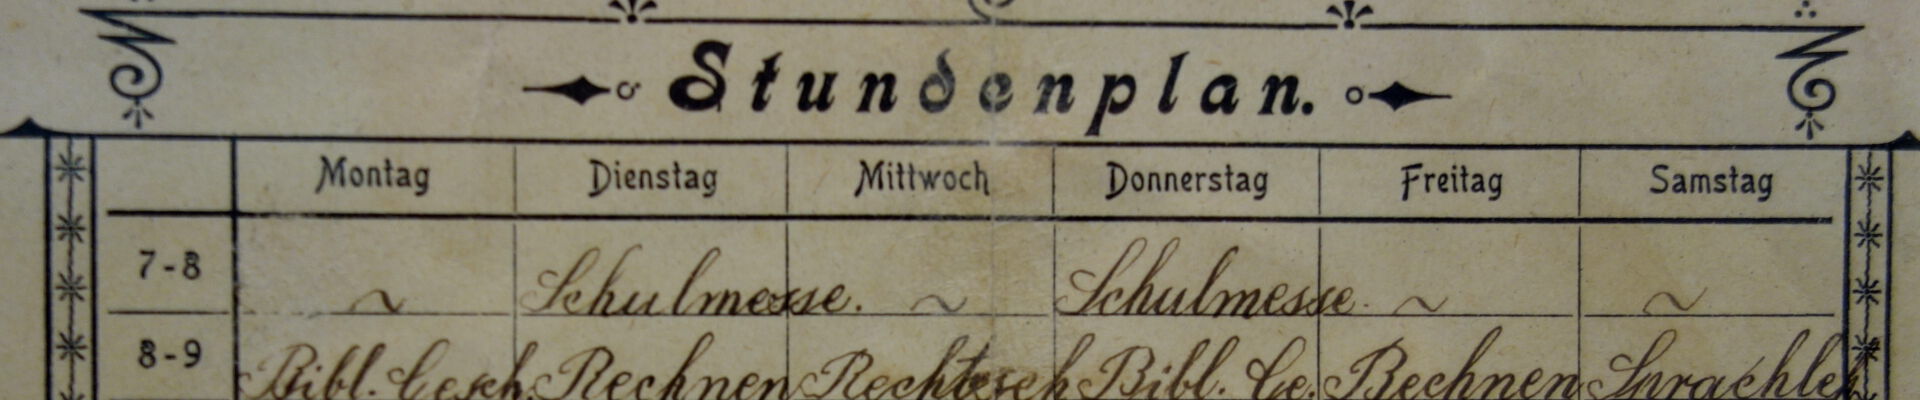 Stundenplan.
Montag Dienstag Mittwoch Donnerstag Freitag Samstag
7-8 ~ Schulmesse. ~ Schulmesse. ~ ~
8-9 Bibl. Gesch. Rechnen Rechtsch Bibl. Ge. Rechnen Sprachleh